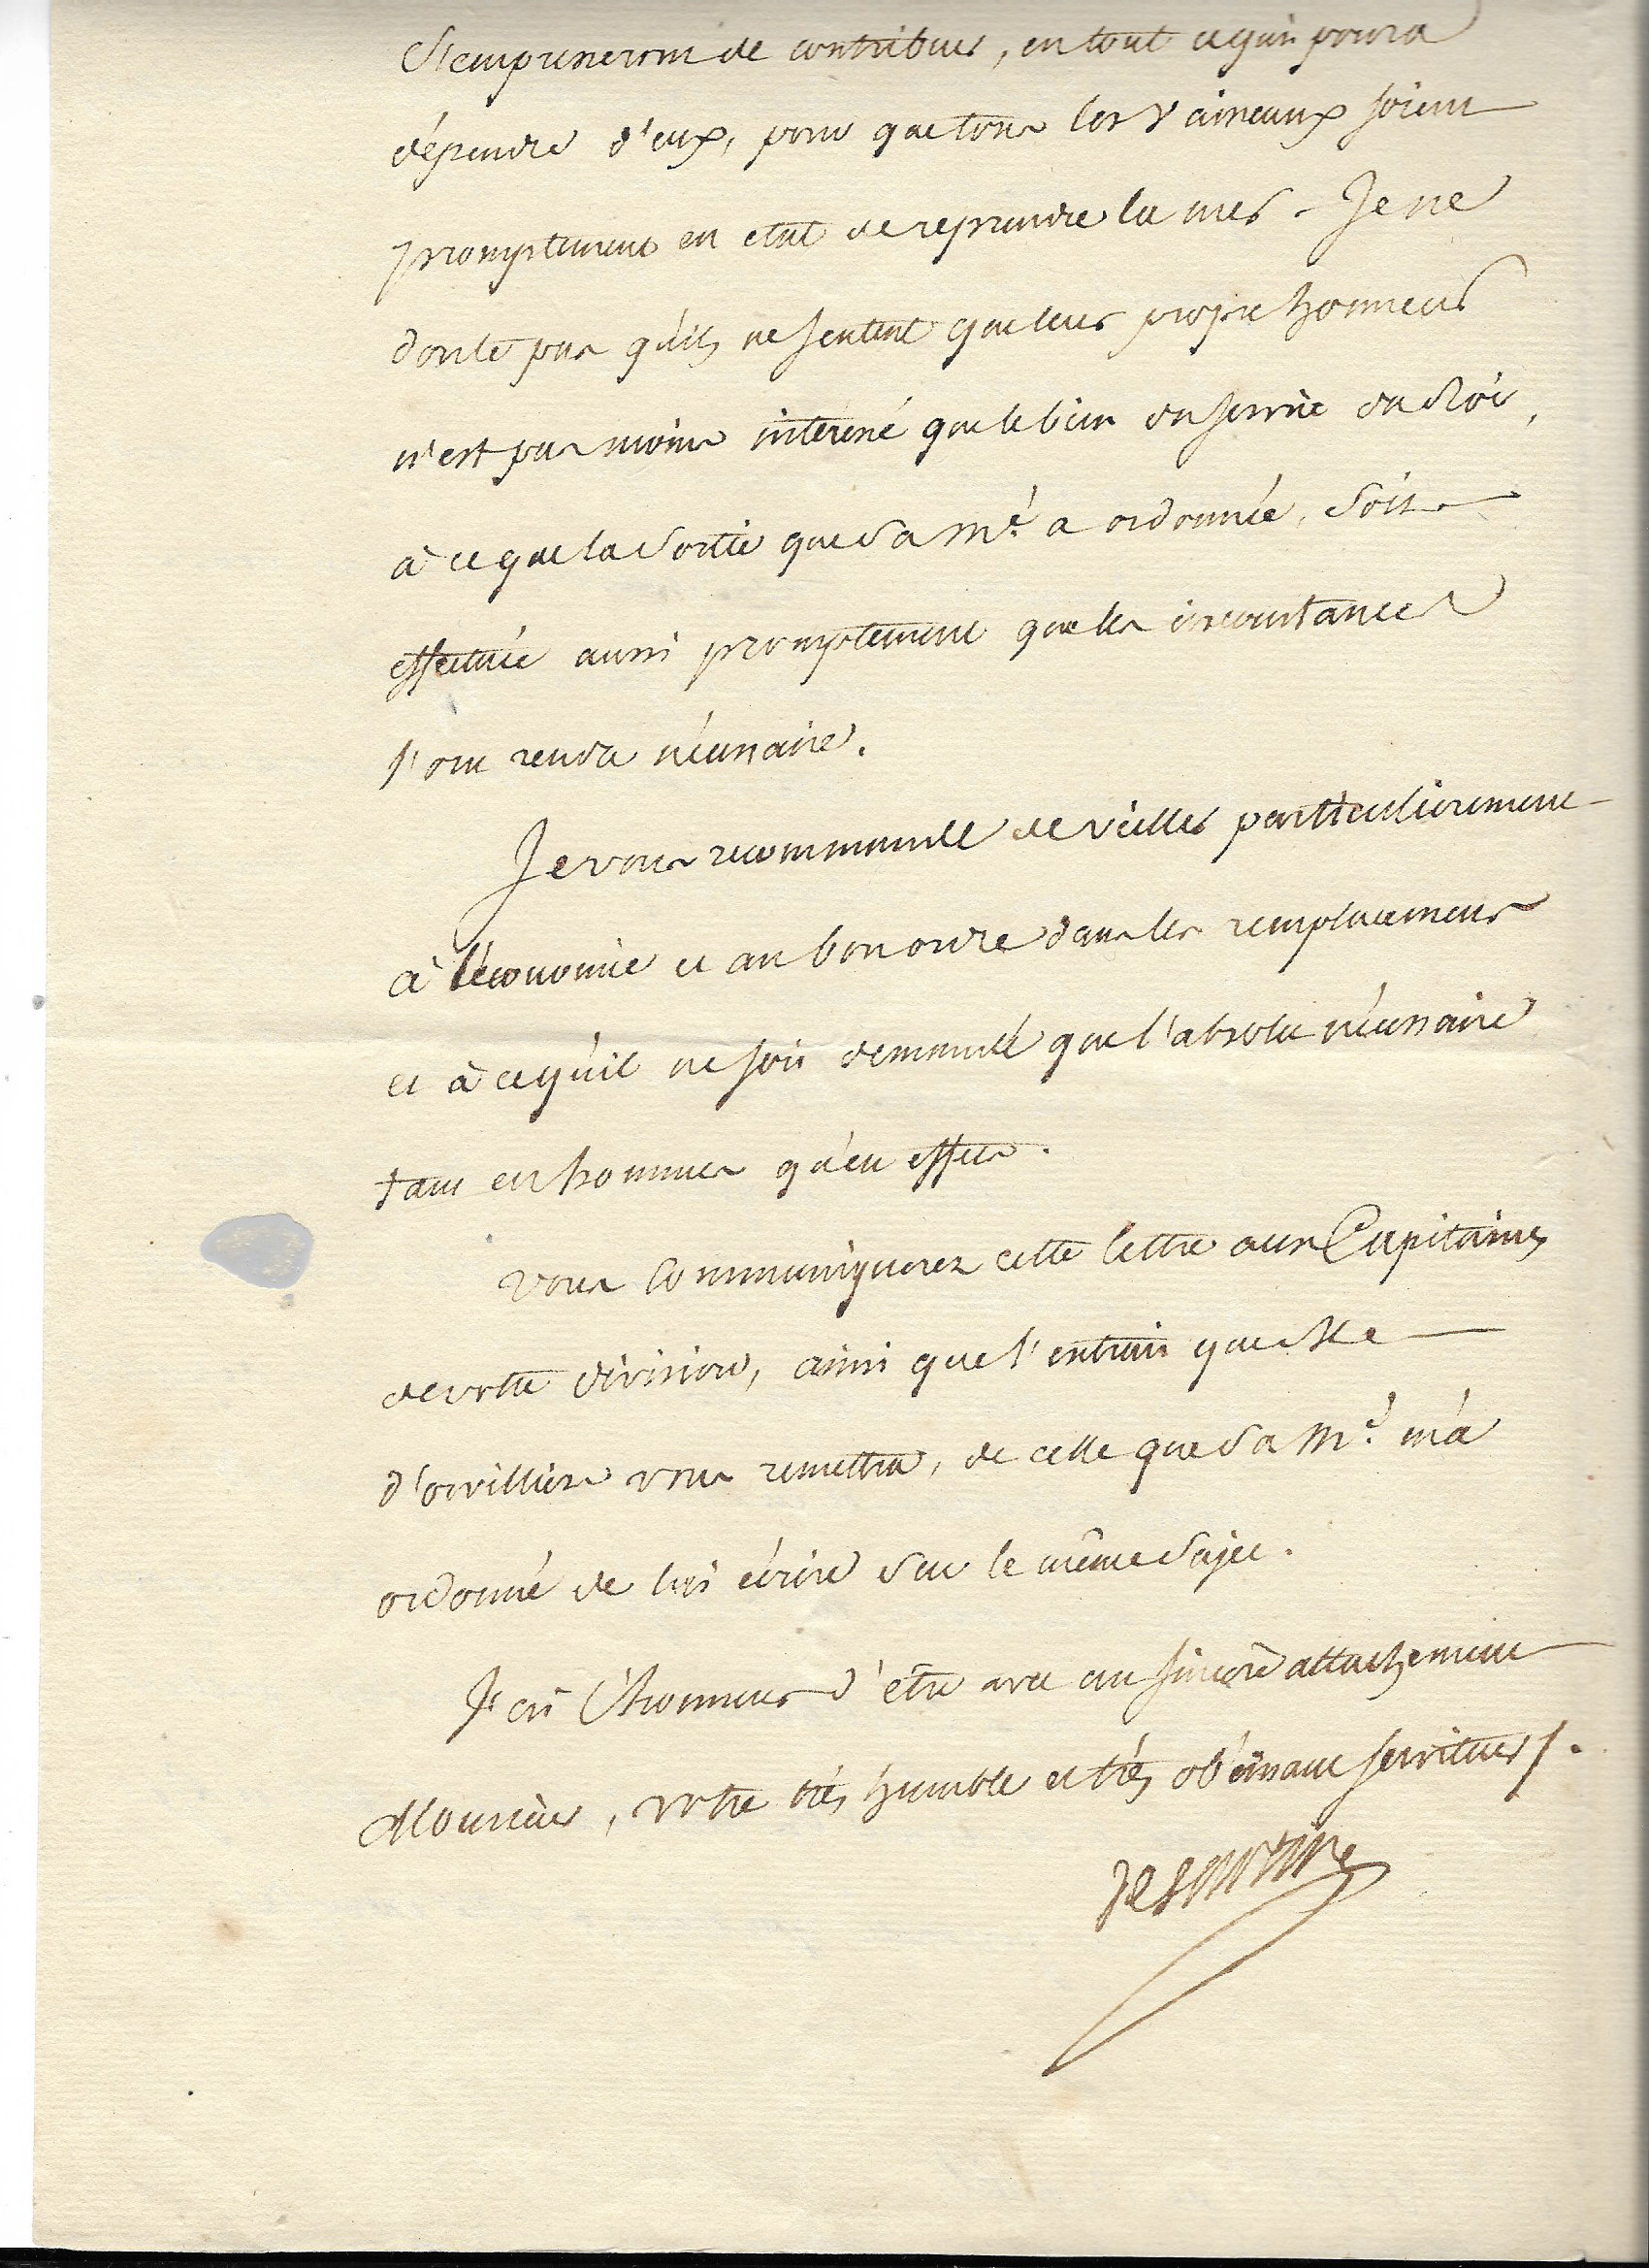 s'empresseront de contribuer, en tout ce qui poura
dépendre d'eux, pour que tous les Vaisseaux soient
promptement en etat de reprendre la mer. Je ne
doute pas qu'ils ne sentent que leur propre honneur
n'est pas moins intéressé que le bien du service du Roi,
à ce que la Sortie que Sa M.é a ordonnée, Soit
effectuée aussi promptement que les circonstances
l'ont rendu nécessaire.
Je vous recommande de veiller particulierement
à l'économie et au bon ordre dans les remplacemens
et à ce qu'il ne soit demandé que l'absolu nécessaire
tant en hommes qu'en effets.
Vous communiquerez cette lettre aux Capitaines
de votre division, ainsi que l'extrait que M. le
d'orvilliers vous remettra, de celle que Sa M.é m'a
ordonné de lui écrire Sur le même Sujet.
J'ai l'honneur d'être avec un sincère attachement
Monsieur, votre très humble et très obéissant serviteur /.
De Sartine